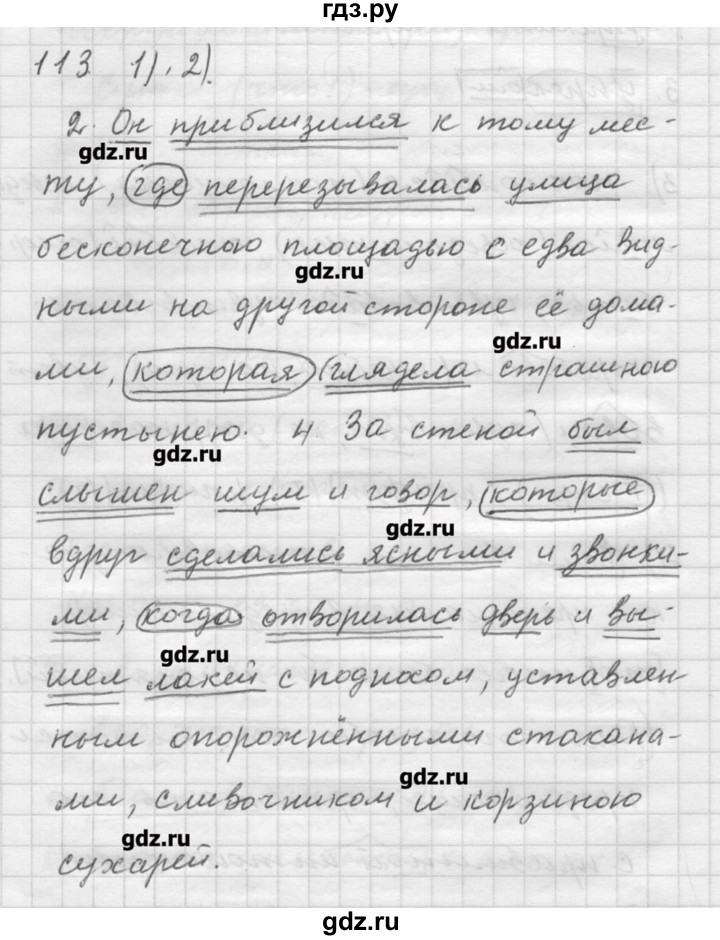 гдз.ру
113 1), 2).
2. Он приблизился к тому мес-
gdz.ru
ту, где перерезывалась улица
бесконечною площадью с едва вид-
gdz.ru
ными на другой стороне её дома-
gdz.ru
ми, которая глядела страшною
пустынею. 4 За стеной был
gdz.ru
слышен шум и говор, которые
gdz.ru
вдруг сделались ясными и звонки-
ми, когда отворилась дверь и вы-
gdz.ru
шел лакей с подносом, уставлен-
ным опорожнёнными стакана-
gdz.ru
ми, сливочником и корзиною
gdz.ru
сухарей.
gdz.ru